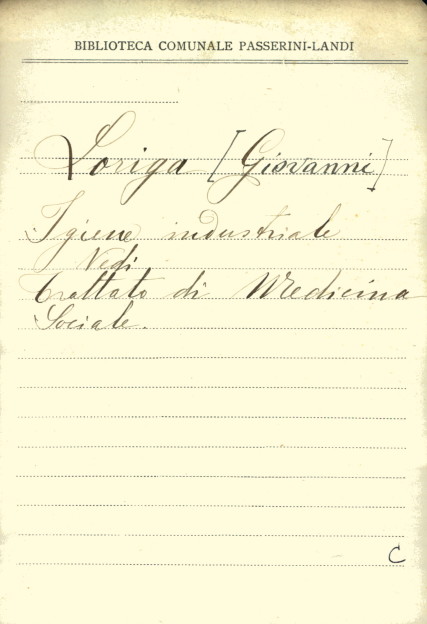 BIBLIOTECA COMUNALE PASSERINI-LANDI
Loriga [Giovanni]
Igiene industriale
Vedi
Trattato di Medicina
Sociale.
C